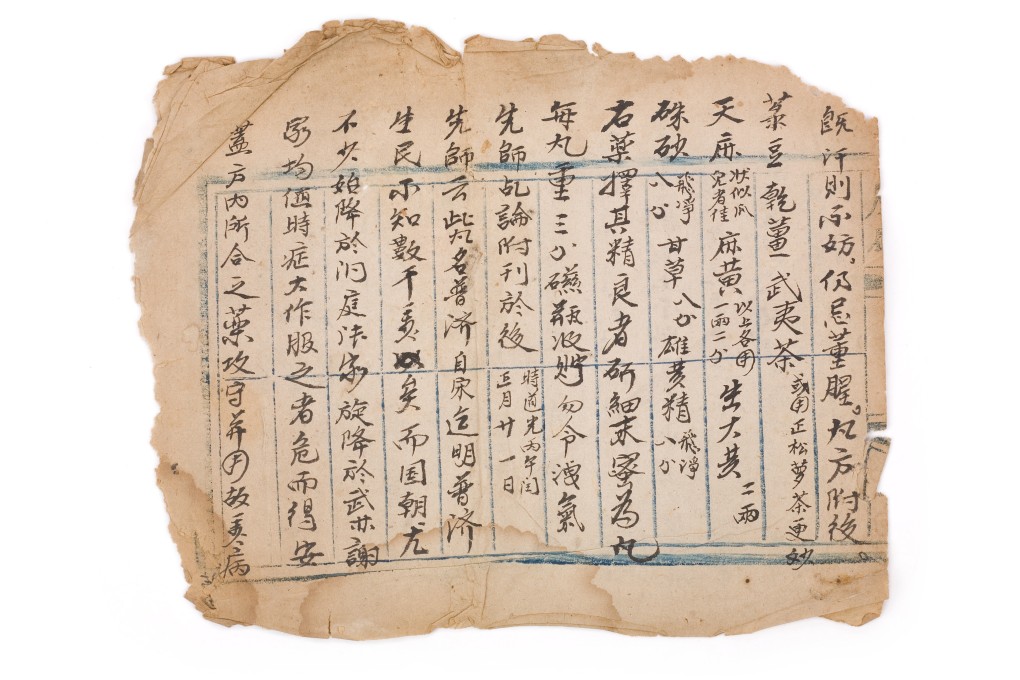 既汗則不妨。仍忌葷腥。丸方附後
菉豆 乾薑 武夷茶 或用正松萝茶更妙
天麻 状似瓜児者佳 麻黄 以上各用一両二分 生大黄 二兩
硃砂 飛淨八分 甘草 八分 雄黄精 飛淨八分
右藥擇其精良者研細末宻為丸
每丸重三分礠瓶收貯勿令洩氣
先師乩論附刊於後 時道光丙午閏正月廿一日
先師云此丸名普济自宋迄明普济
生民不知數千萬矣而国朝尤
不少始降於洞庭法家旋降於武林謝
家均值時症大作服之者危而得安
蓋方内所合之藥攻守并用故萬病